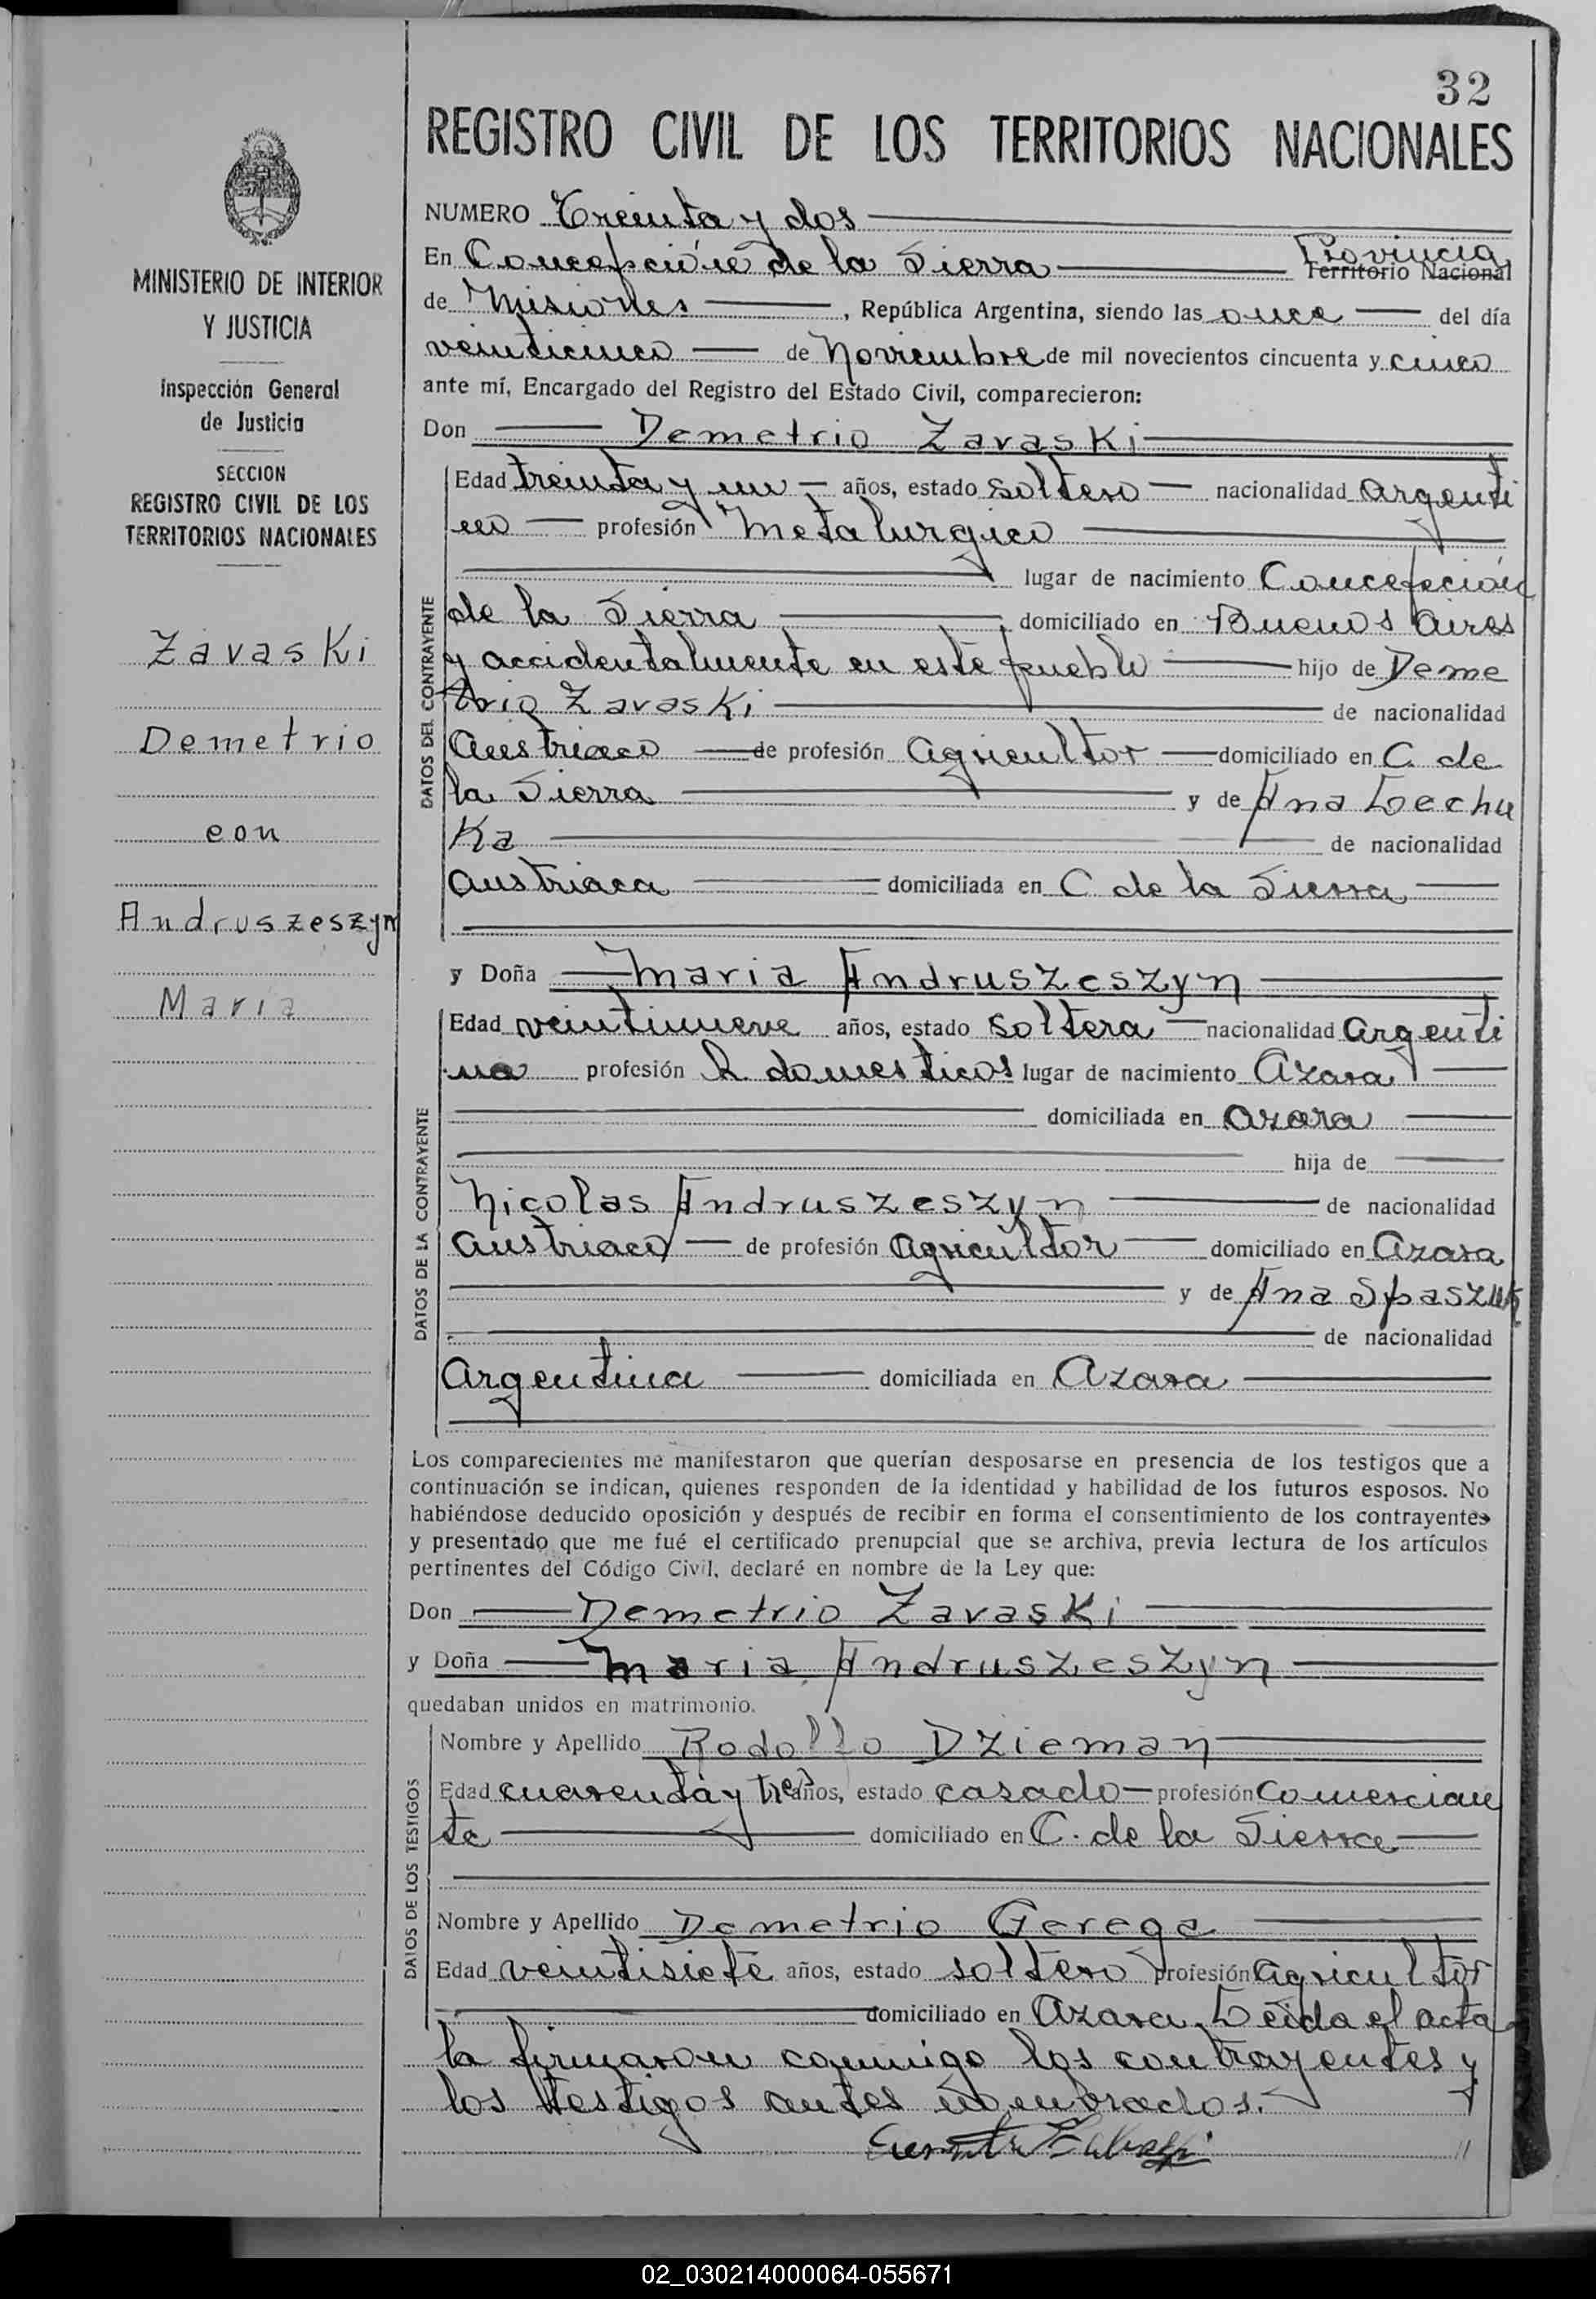 32
REGISTRO CIVIL DE LOS TERRITORIOS NACIONALES
MINISTERIO DE INTERIOR
Y JUSTICIA
Inspección General
de Justicia
SECCION
REGISTRO CIVIL DE LOS
TERRITORIOS NACIONALES
Zavaski
Demetrio
con
Andruszeszyn
Maria
NUMERO Treinta y dos
En Concepción de la Sierra Provincia Territorio Nacional
de Misiones, República Argentina, siendo las once del día
veinticinco de Noviembre de mil novecientos cincuenta y cinco
ante mí, Encargado del Registro del Estado Civil, comparecieron:
Don Demetrio Zavaski
DATOS DEL CONTRAYENTE
Edad treinta y un años, estado soltero nacionalidad argenti
no profesión Metalurgico
lugar de nacimiento Concepción
de la Sierra domiciliado en Buenos Aires
y accidentalmente en este pueblo hijo de Deme
trio Zavaski de nacionalidad
Austriaco de profesión agricultor domiciliado en C. de
la Sierra y de Ana Lechu
Ka de nacionalidad
austriaca domiciliada en C de la Sierra
y Doña Maria Andruszeszyn
DATOS DE LA CONTRAYENTE
Edad veintinueve años, estado soltera nacionalidad argenti
na profesión Q. domesticos lugar de nacimiento Azara
domiciliada en Azara
hija de
Nicolas Andruszeszyn de nacionalidad
austriaco de profesión agricultor domiciliado en Azara
y de Ana Spaszuk
de nacionalidad
argentina domiciliada en Azara
Los comparecientes me manifestaron que querían desposarse en presencia de los testigos que a
continuación se indican, quienes responden de la identidad y habilidad de los futuros esposos. No
habiéndose deducido oposición y después de recibir en forma el consentimiento de los contrayentes
y presentado que me fué el certificado prenupcial que se archiva, previa lectura de los artículos
pertinentes del Código Civil, declaré en nombre de la Ley que:
Don Demetrio Zavaski
y Doña Maria Andruszeszyn
quedaban unidos en matrimonio.
DATOS DE LOS TESTIGOS
Nombre y Apellido Rodolfo Dzieman
Edad cuarenta y tres años, estado casado profesión Comercian
te domiciliado en C. de la Sierra
Nombre y Apellido Demetrio Gerega
Edad veintisiete años, estado soltero profesión agricultor
domiciliado en Azara. Leida el acta
la firmaron conmigo los contrayentes y
los testigos antes nombrados.
02_030214000064-055671